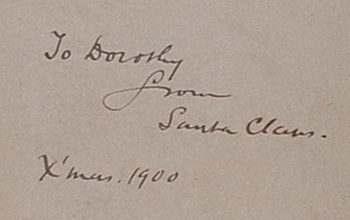 To Dorothy
from
Santa Claus.
X'mas. 1900